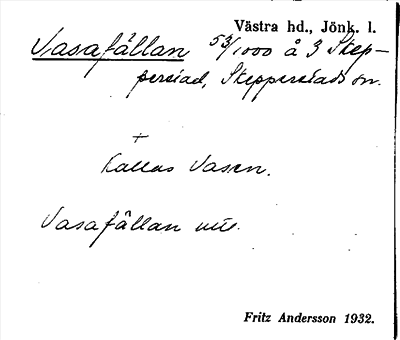 Västra hd., Jönk. l.
Vasafällan 53/1000 å 3 Skep-
persiad, Skepperstads sn.
+
Kallas Vasen.
Vasafällan
Fritz Andersson 1932.